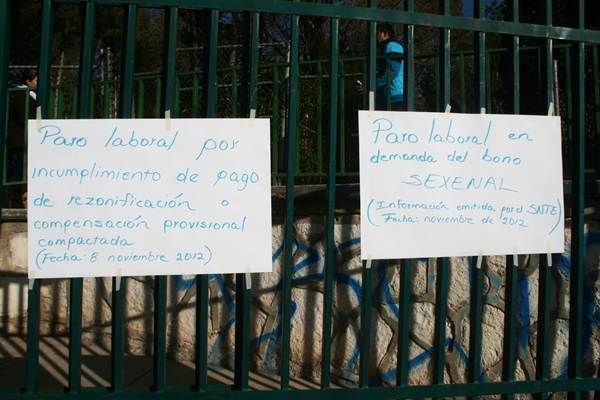 Paro laboral por
incumplimiento de pago
de rezonificación o
compensación provisional
compactada
(Fecha: 8 noviembre 2012)
Paro laboral en
demanda del bono
SEXENAL
(Información emitida por el SNTE)
(Fecha: noviembre de 2012)